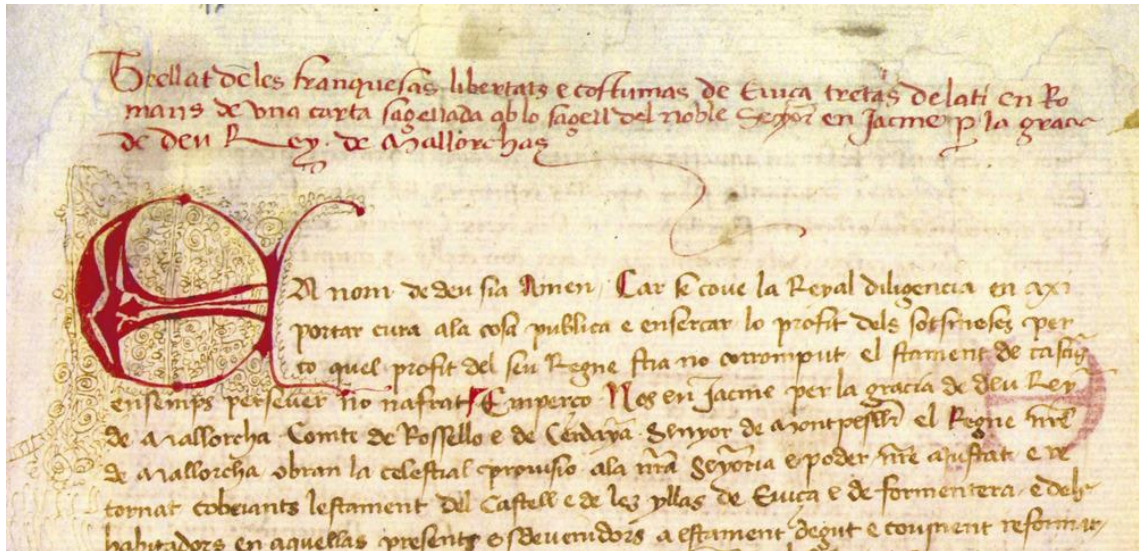 Treellat de les franquesas libertats e costumas de Euiça tretas de lati en Ro
mans de vna carta sagellada ab lo sagell del noble Senyor en Jacme p la gracia
de deu Rey de Mallorchas
En nom de deu sia Amen Car se coue la Reyal diligencia en axi
portar cura a la cosa publica e ensercar lo profit dels sotsmeses per
ço quel profit del seu Regne sia no corromput el stament de cascu
ensemps perseuer no nafrat Emperço Nos en Jacme per la gracia de deu Rey
de Mallorcha Comte de Rossello e de Cerdaya Senyor de Montpesler el Regne nre
de Mallorcha obran la celestial prouisio a la nra Senyoria e poder nre aiustat e re
tornat cobeiants lestament del Castell e de les yllas de Euiça e de formentera e dels
habitadors en aquellas presents e esdeuenidors a estament degut e couinent reformar